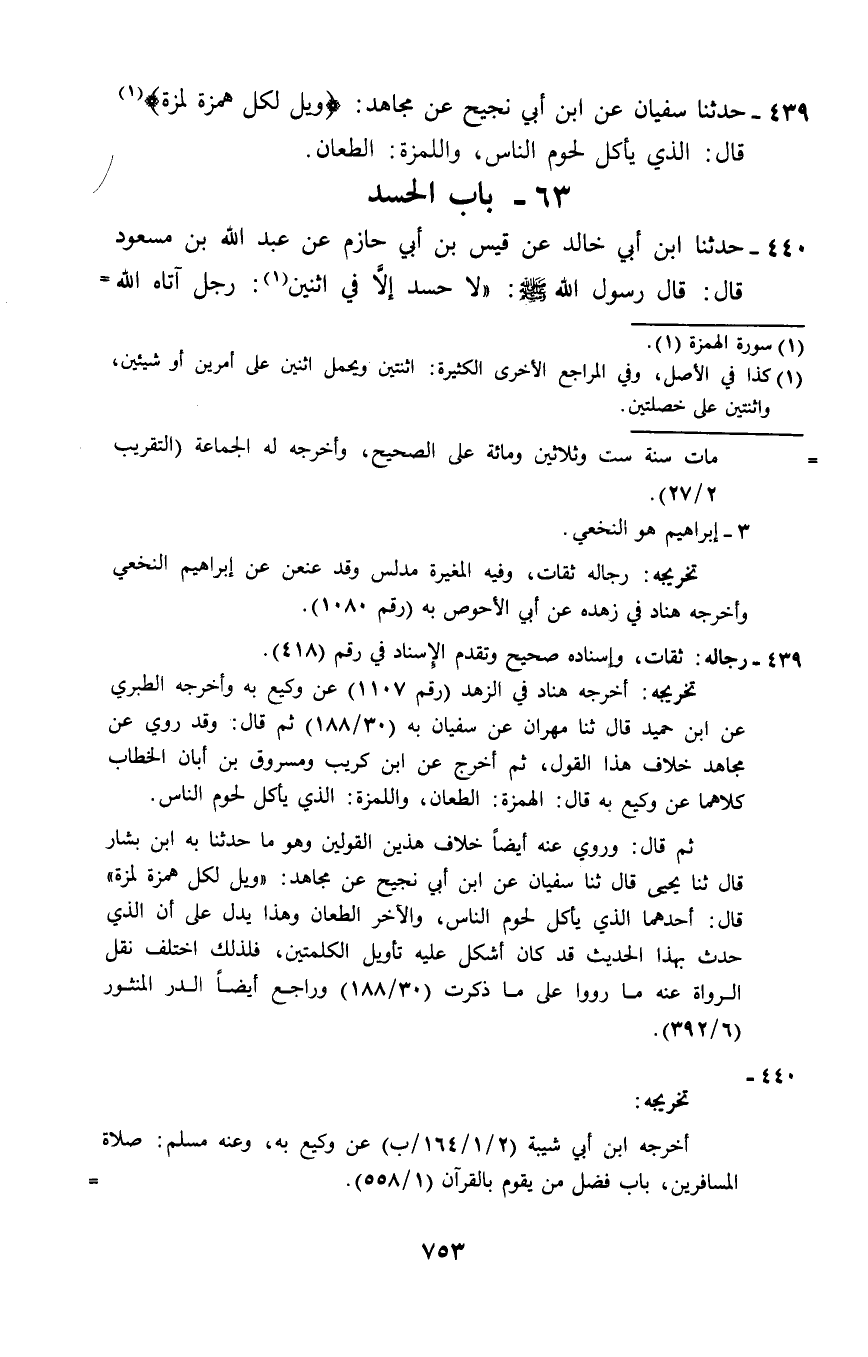 ٤٣٩ ـ حدثنا سفيان عن ابن أبي نجيح عن مجاهد: ﴿ويل لكل همزة لمزة﴾(١)
قال: الذي يأكل لحوم الناس، واللمزة: الطعان.
٦٣ ـ باب الحسد
٤٤٠ ـ حدثنا ابن أبي خالد عن قيس بن أبي حازم عن عبد الله بن مسعود
قال: قال رسول الله ﷺ: «لا حسد إلاَّ في اثنين(١): رجل آتاه الله =
(١) سورة الهمزة (١).
(١) كذا في الأصل، وفي المراجع الأخرى الكثيرة: اثنتين ويحمل اثنين على أمرين أو شيئين،
واثنتين على خصلتين.
= مات سنة ست وثلاثين ومائة على الصحيح، وأخرجه له الجماعة (التقريب
٢٧/٢).
٣ ـ إبراهيم هو النخعي.
تخريجه: رجاله ثقات، وفيه المغيرة مدلس وقد عنعن عن إبراهيم النخعي
وأخرجه هناد في زهده عن أبي الأحوص به (رقم ١٠٨٠).
٤٣٩ ـ رجاله: ثقات، وإسناده صحيح وتقدم الإسناد في رقم (٤١٨).
تخريجه: أخرجه هناد في الزهد (رقم ١١٠٧) عن وكيع به وأخرجه الطبري
عن ابن حميد قال ثنا مهران عن سفيان به (١٨٨/٣٠) ثم قال: وقد روي عن
مجاهد خلاف هذا القول، ثم أخرج عن ابن كريب ومسروق بن أبان الخطاب
كلاهما عن وكيع به قال: الهمزة: الطعان، واللمزة: الذي يأكل لحوم الناس.
ثم قال: وروي عنه أيضاً خلاف هذين القولين وهو ما حدثنا به ابن بشار
قال ثنا يحيى قال ثنا سفيان عن ابن أبي نجيح عن مجاهد: «ويل لكل همزة لمزة»
قال: أحدهما الذي يأكل لحوم الناس، والآخر الطعان وهذا يدل على أن الذي
حدث بهذا الحديث قد كان أشكل عليه تأويل الكلمتين، فلذلك اختلف نقل
الرواة عنه ما رووا على ما ذكرت (١٨٨/٣٠) وراجع أيضاً الدر المنثور
(٣٩٢/٦).
٤٤٠ ـ
تخريجه:
أخرجه ابن أبي شيبة (١٦٤/١/٢/ب) عن وكيع به، وعنه مسلم: صلاة
المسافرين، باب فضل من يقوم بالقرآن (٥٥٨/١). =
٧٥٣